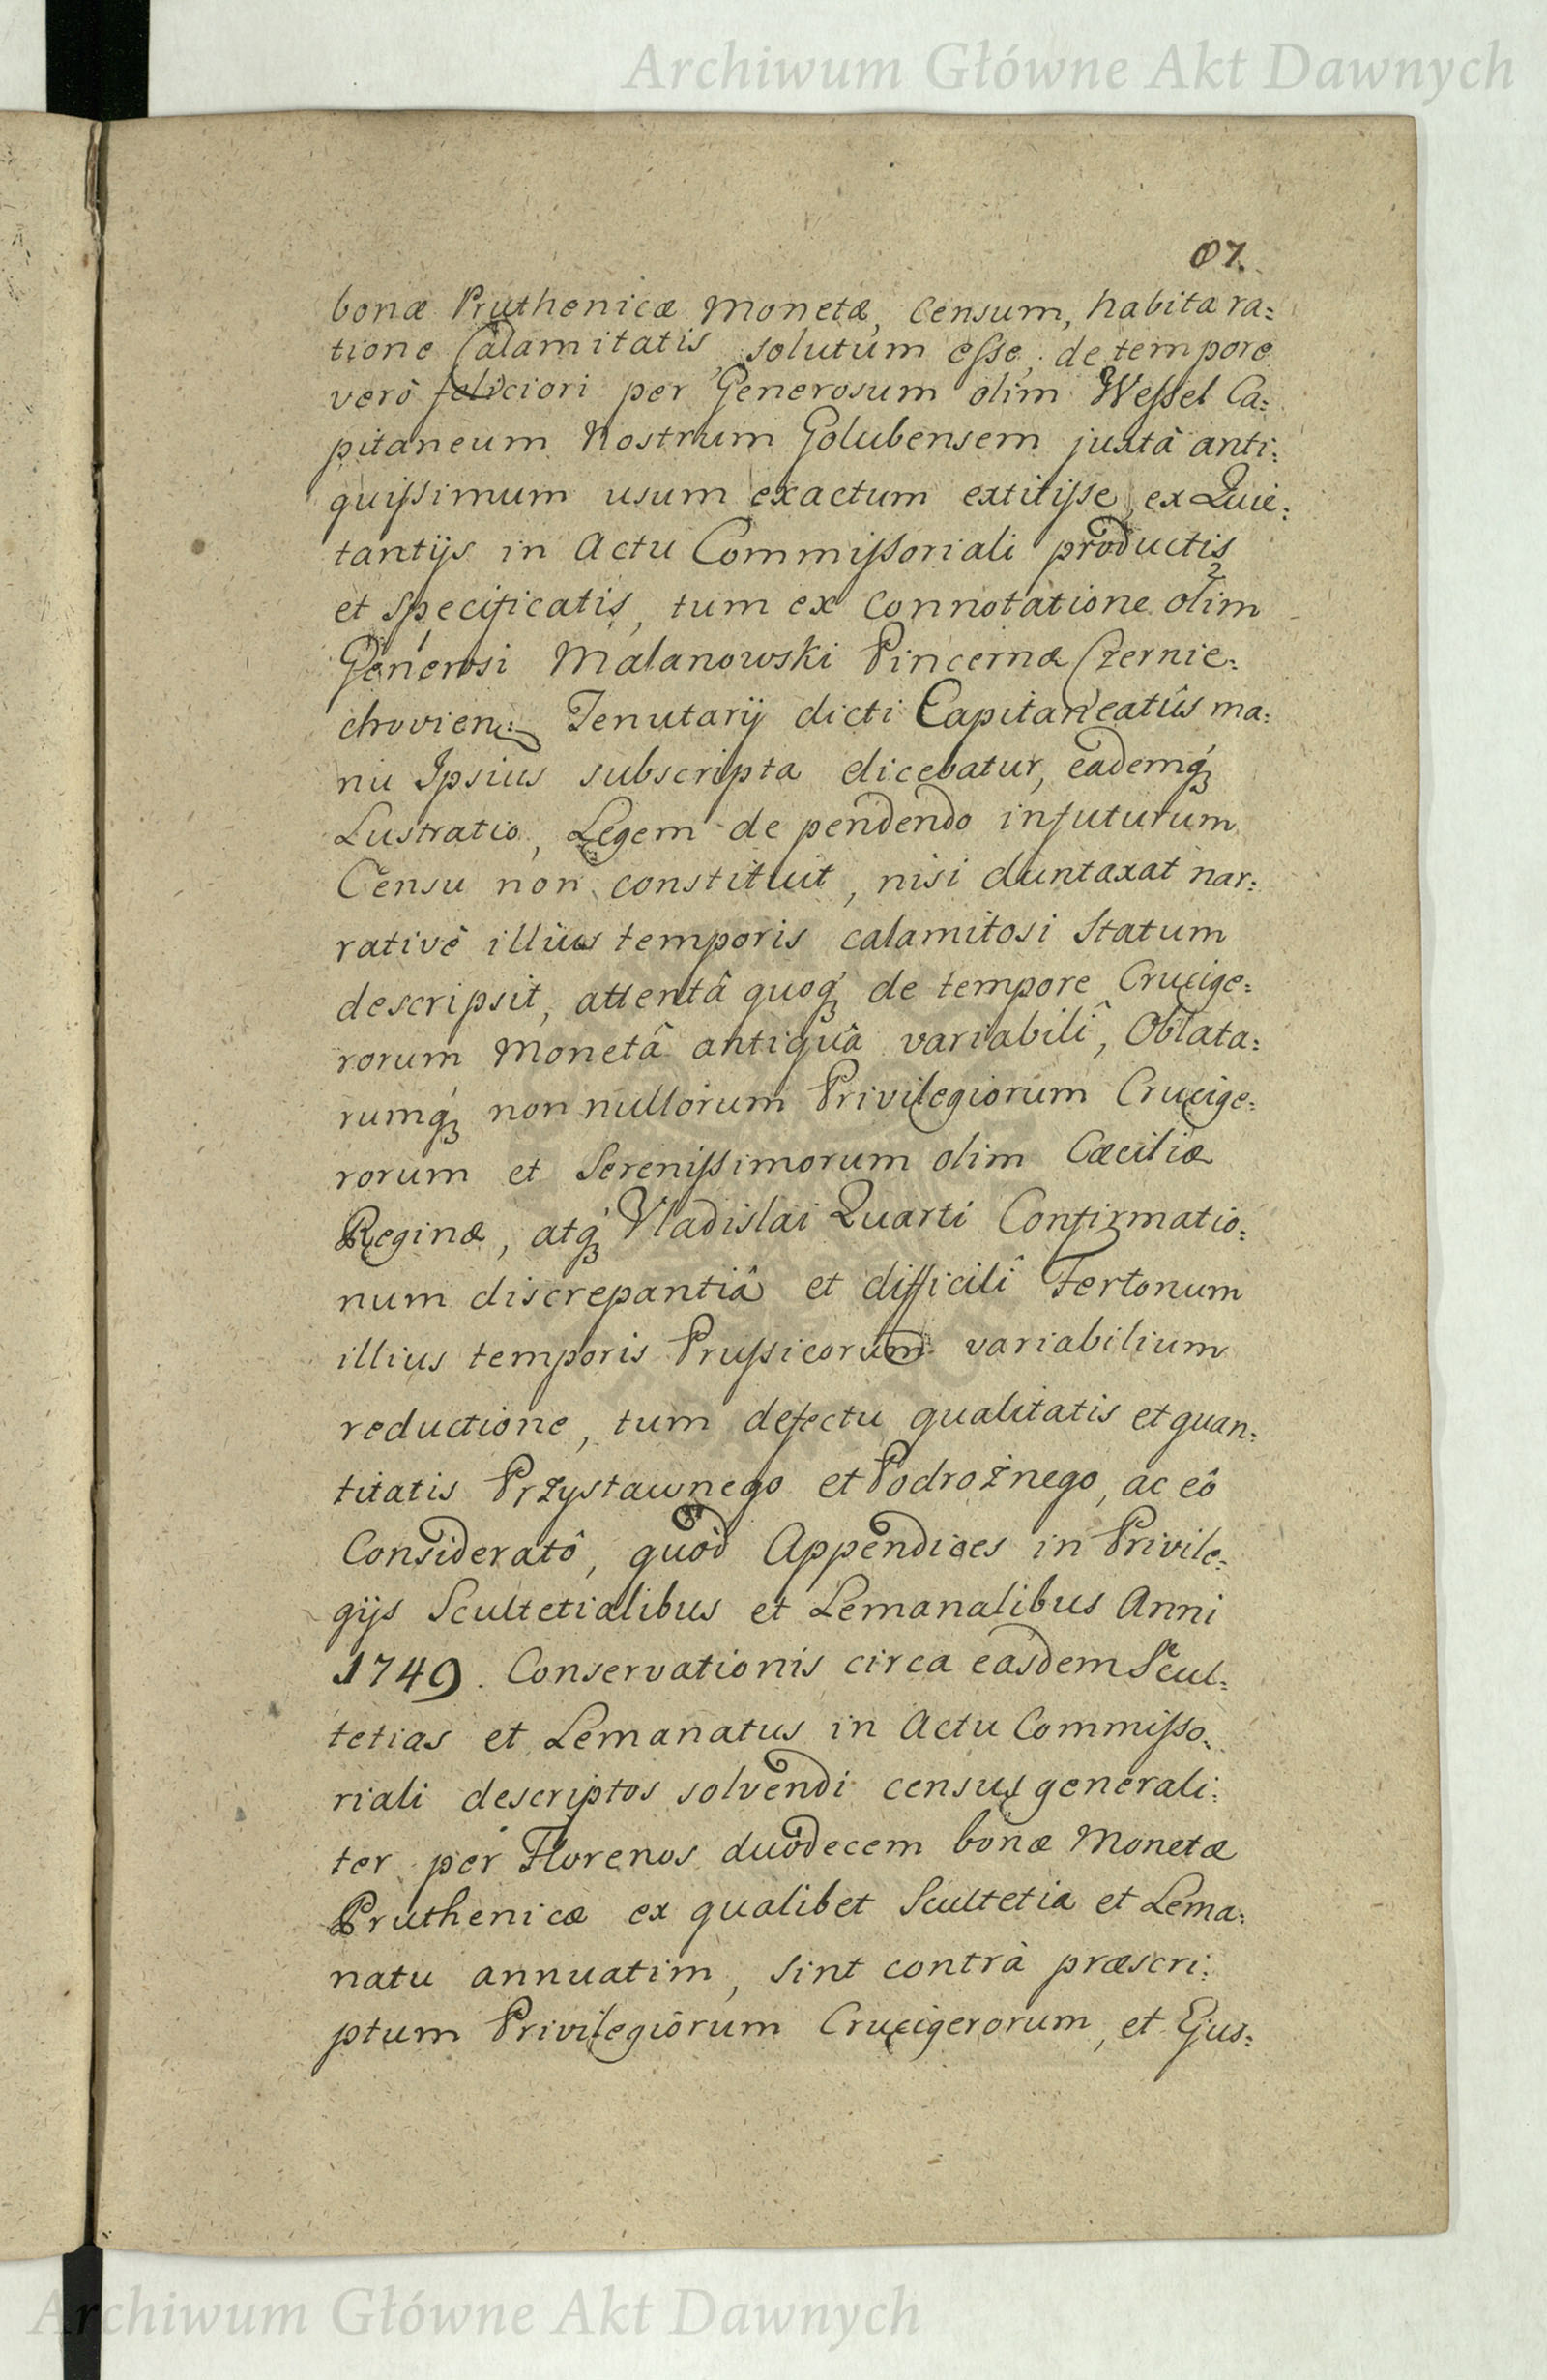 Archiwum Główne Akt Dawnych
07.
bonæ Pruthenicæ Monetæ, Censum, habita ra=
tione Calamitatis solutum esse, de tempore
verò feliciori per Generosum olim Wessel Ca=
pitaneum Nostrum Golubensem juxtà anti=
quissimum usum exactum extitisse, ex Quie=
tantijs in Actu Commissoriali productis
et specificatis, tum ex Connotatione olim
Generosi Malanowski Pincernæ Czernie=
chovien: Tenutarij dicti Capitaneatûs ma=
nu Ipsius subscripta elicebatur, eademq́
Lustratio, Legem de pendendo infuturum
Censu non constituit, nisi duntaxat nar=
rativè illius temporis calamitosi Statum
descripsit, attentâ quoq́ de tempore Crucige=
rorum Monetâ antiquâ variabili, Oblata=
rumq́ non nullorum Privilegiorum Crucige=
rorum et Serenissimorum olim Cæciliæ
Reginæ, atq́ Vladislai Quarti Confirmatio=
num discrepantiâ et difficili Fertonum
illius temporis Prussicorum variabilium
reductione, tum defectu qualitatis et quan=
titatis Przystawnego et Podrożnego, ac eô
Consideratô, quòd Appendices in Privile=
gijs Scultetialibus et Lemanalibus Anni
1749. Conservationis circa easdem Scul=
tetias et Lemanatus in Actu Commisso=
riali descriptos solvendi census generali=
ter per Florenos duodecem bonæ Monetæ
Pruthenicæ ex qualibet Scultetia et Lema=
natu annuatim, sint contrà præscri=
ptum Privilegiorum Crucigerorum, et Ejus=
Archiwum Główne Akt Dawnych